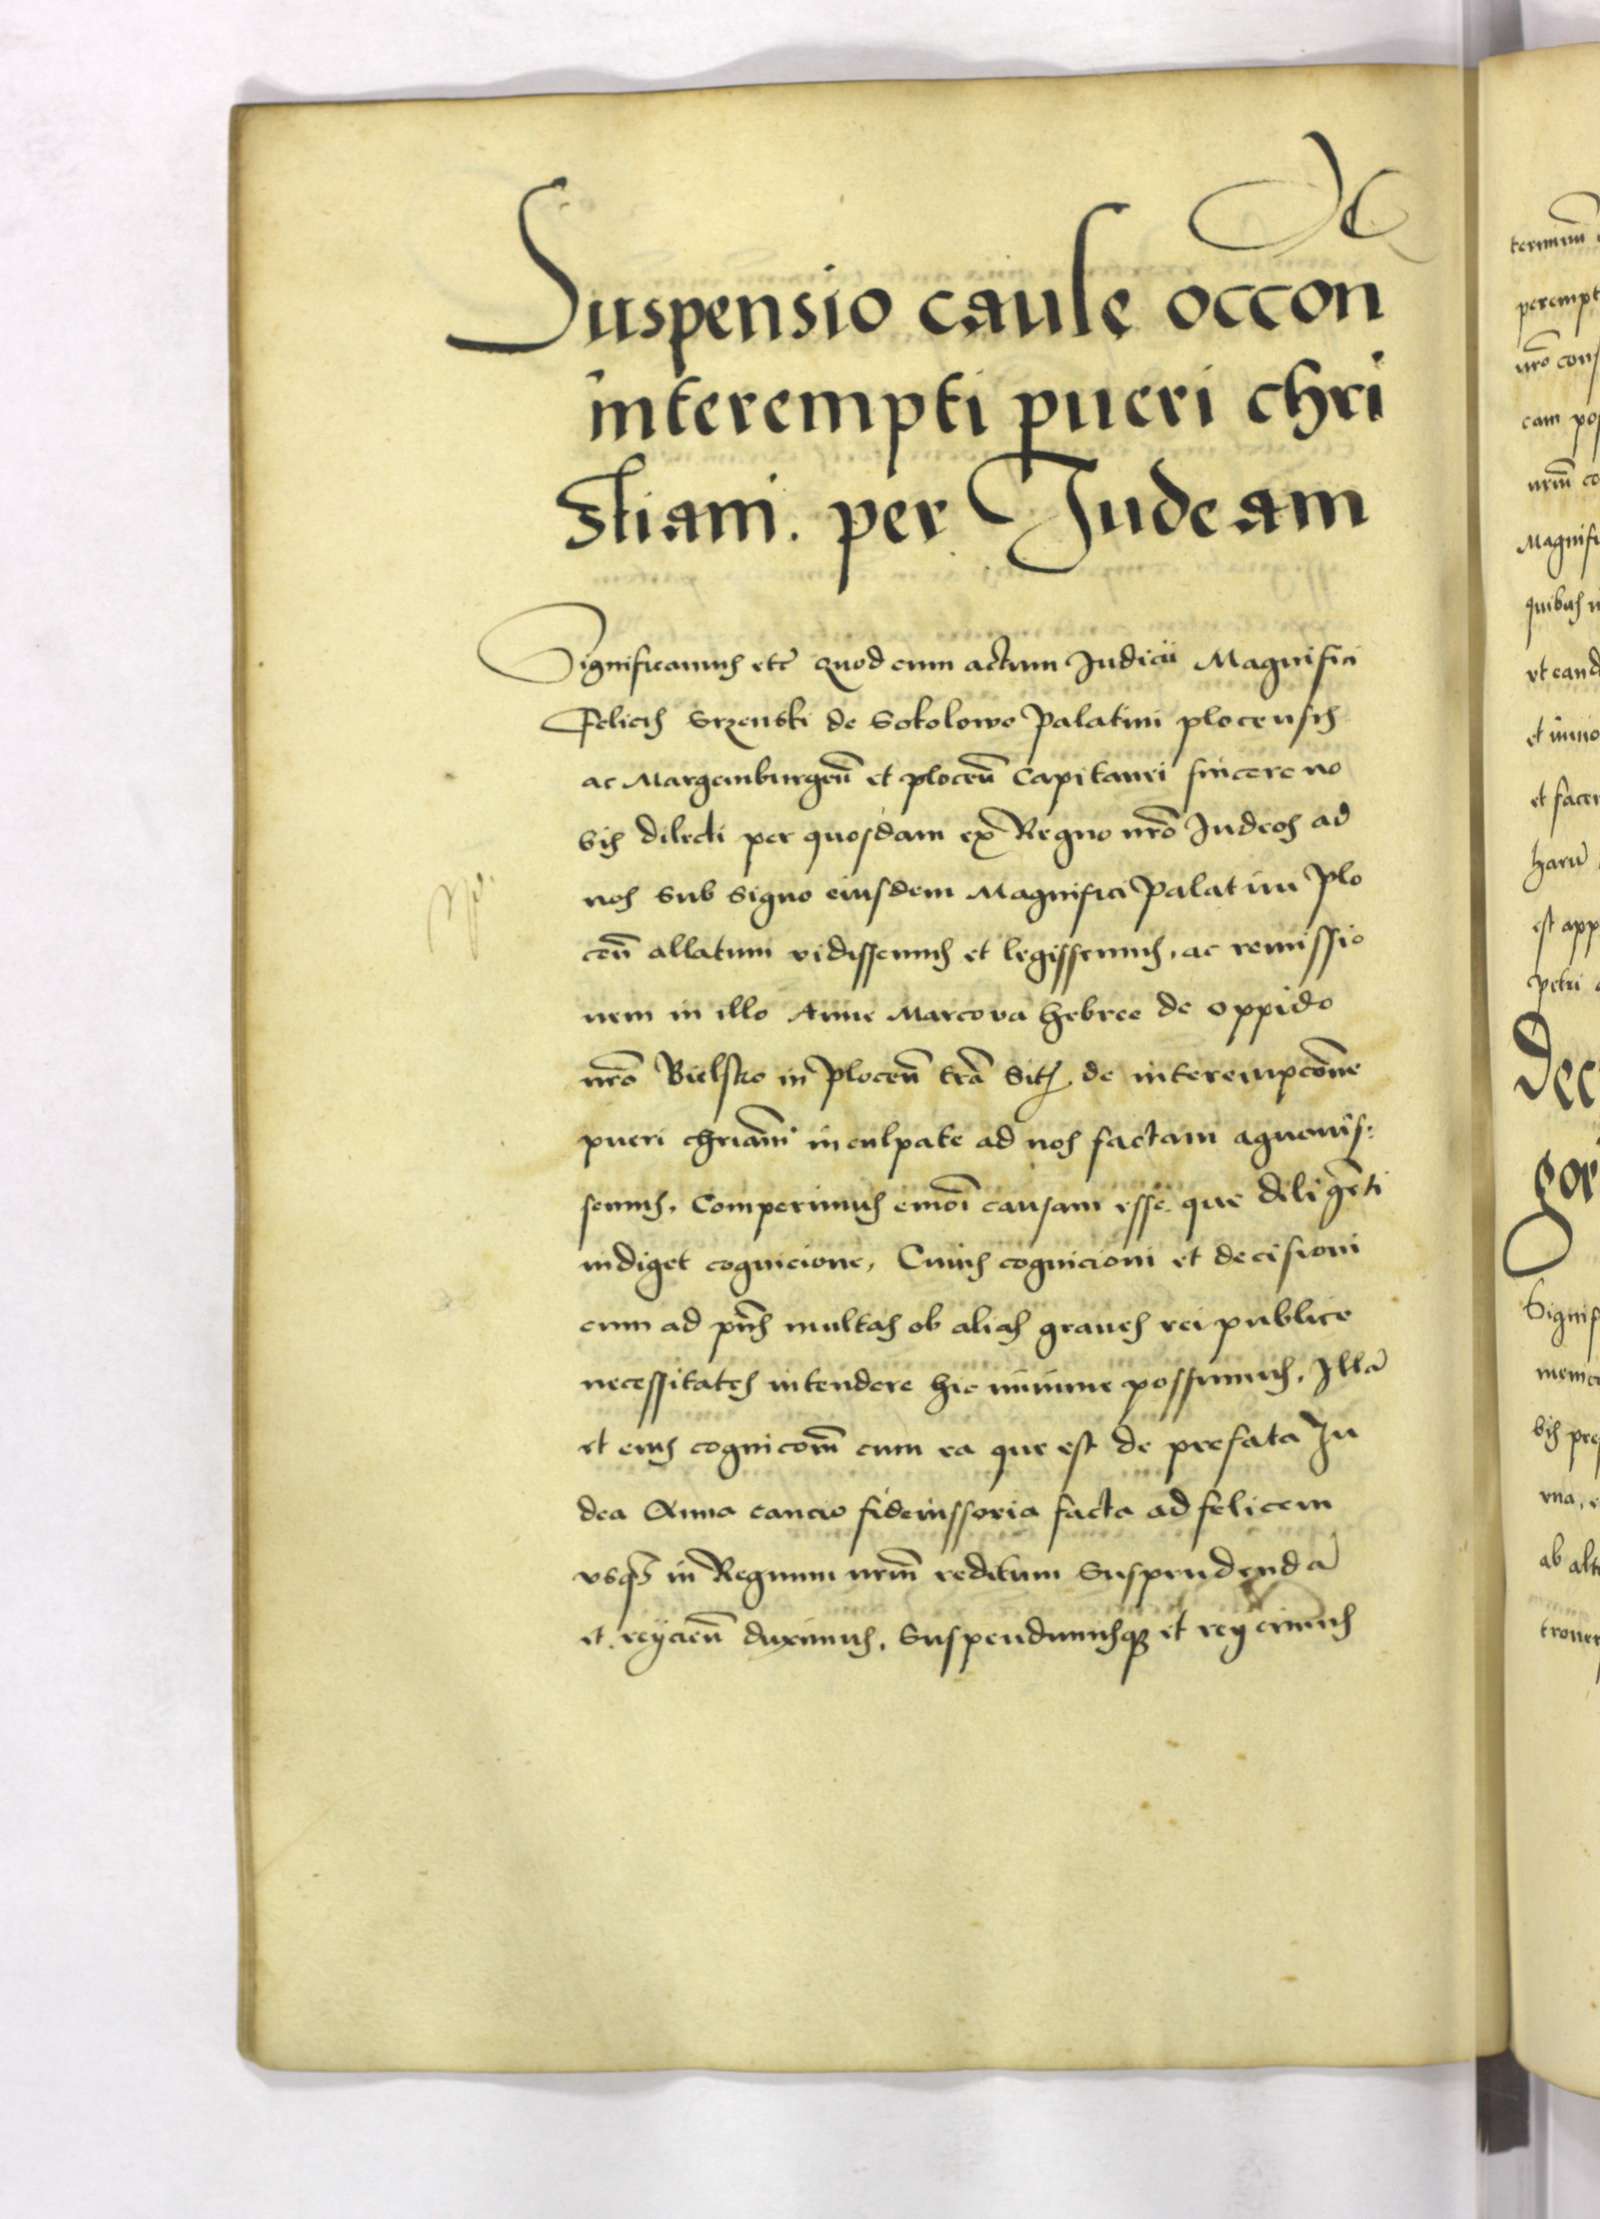 De
Suspensio cause occon
interempti pueri chri
stiani. per Judeam
Significamus etc̄ quod cum actum Judicii Magnifici
Felicis Srzenski de Sokolowo Palatini plocensis
ac Margemburgeñ et ploceñ Capitanei sincere no
bis dilecti per quosdam ex Regno nrō Judeos ad
nos sub signo eiusdem Magnifici Palatini Plo
ceñ allatum vidissemus et legissemus, ac remissio
nem in illo Anne Marcova hebree de oppido
nrō Bielsko in Ploceñ trā sit. de interempcōne
pueri chrianī inculpate ad nos factam agnovis:
semus, Comperimus emōi causam esse que diligēti
indiget cognicione, Cuius cognicioni et decisioni
cum ad pn̄s multas ob alias graues rei publice
necessitates intendere hic minime possumus, Illā
et eius cognicōm̄ cum ea que est de prefata Ju
dea Anna caucio fideiussoria facta ad felicem
vsqȝ in Regnum nrm̄ reditum Suspendendā
et reycieñ duximus, Suspendimusqȝ et reycimus
terminū
perempt
nrō cons
cam pos
nrm̄ co
Magnifi
quibus
vt eand
et
et facer
harū
est app
petri
Dec
gor
Signif
bis pre
vna,
ab alt
trover